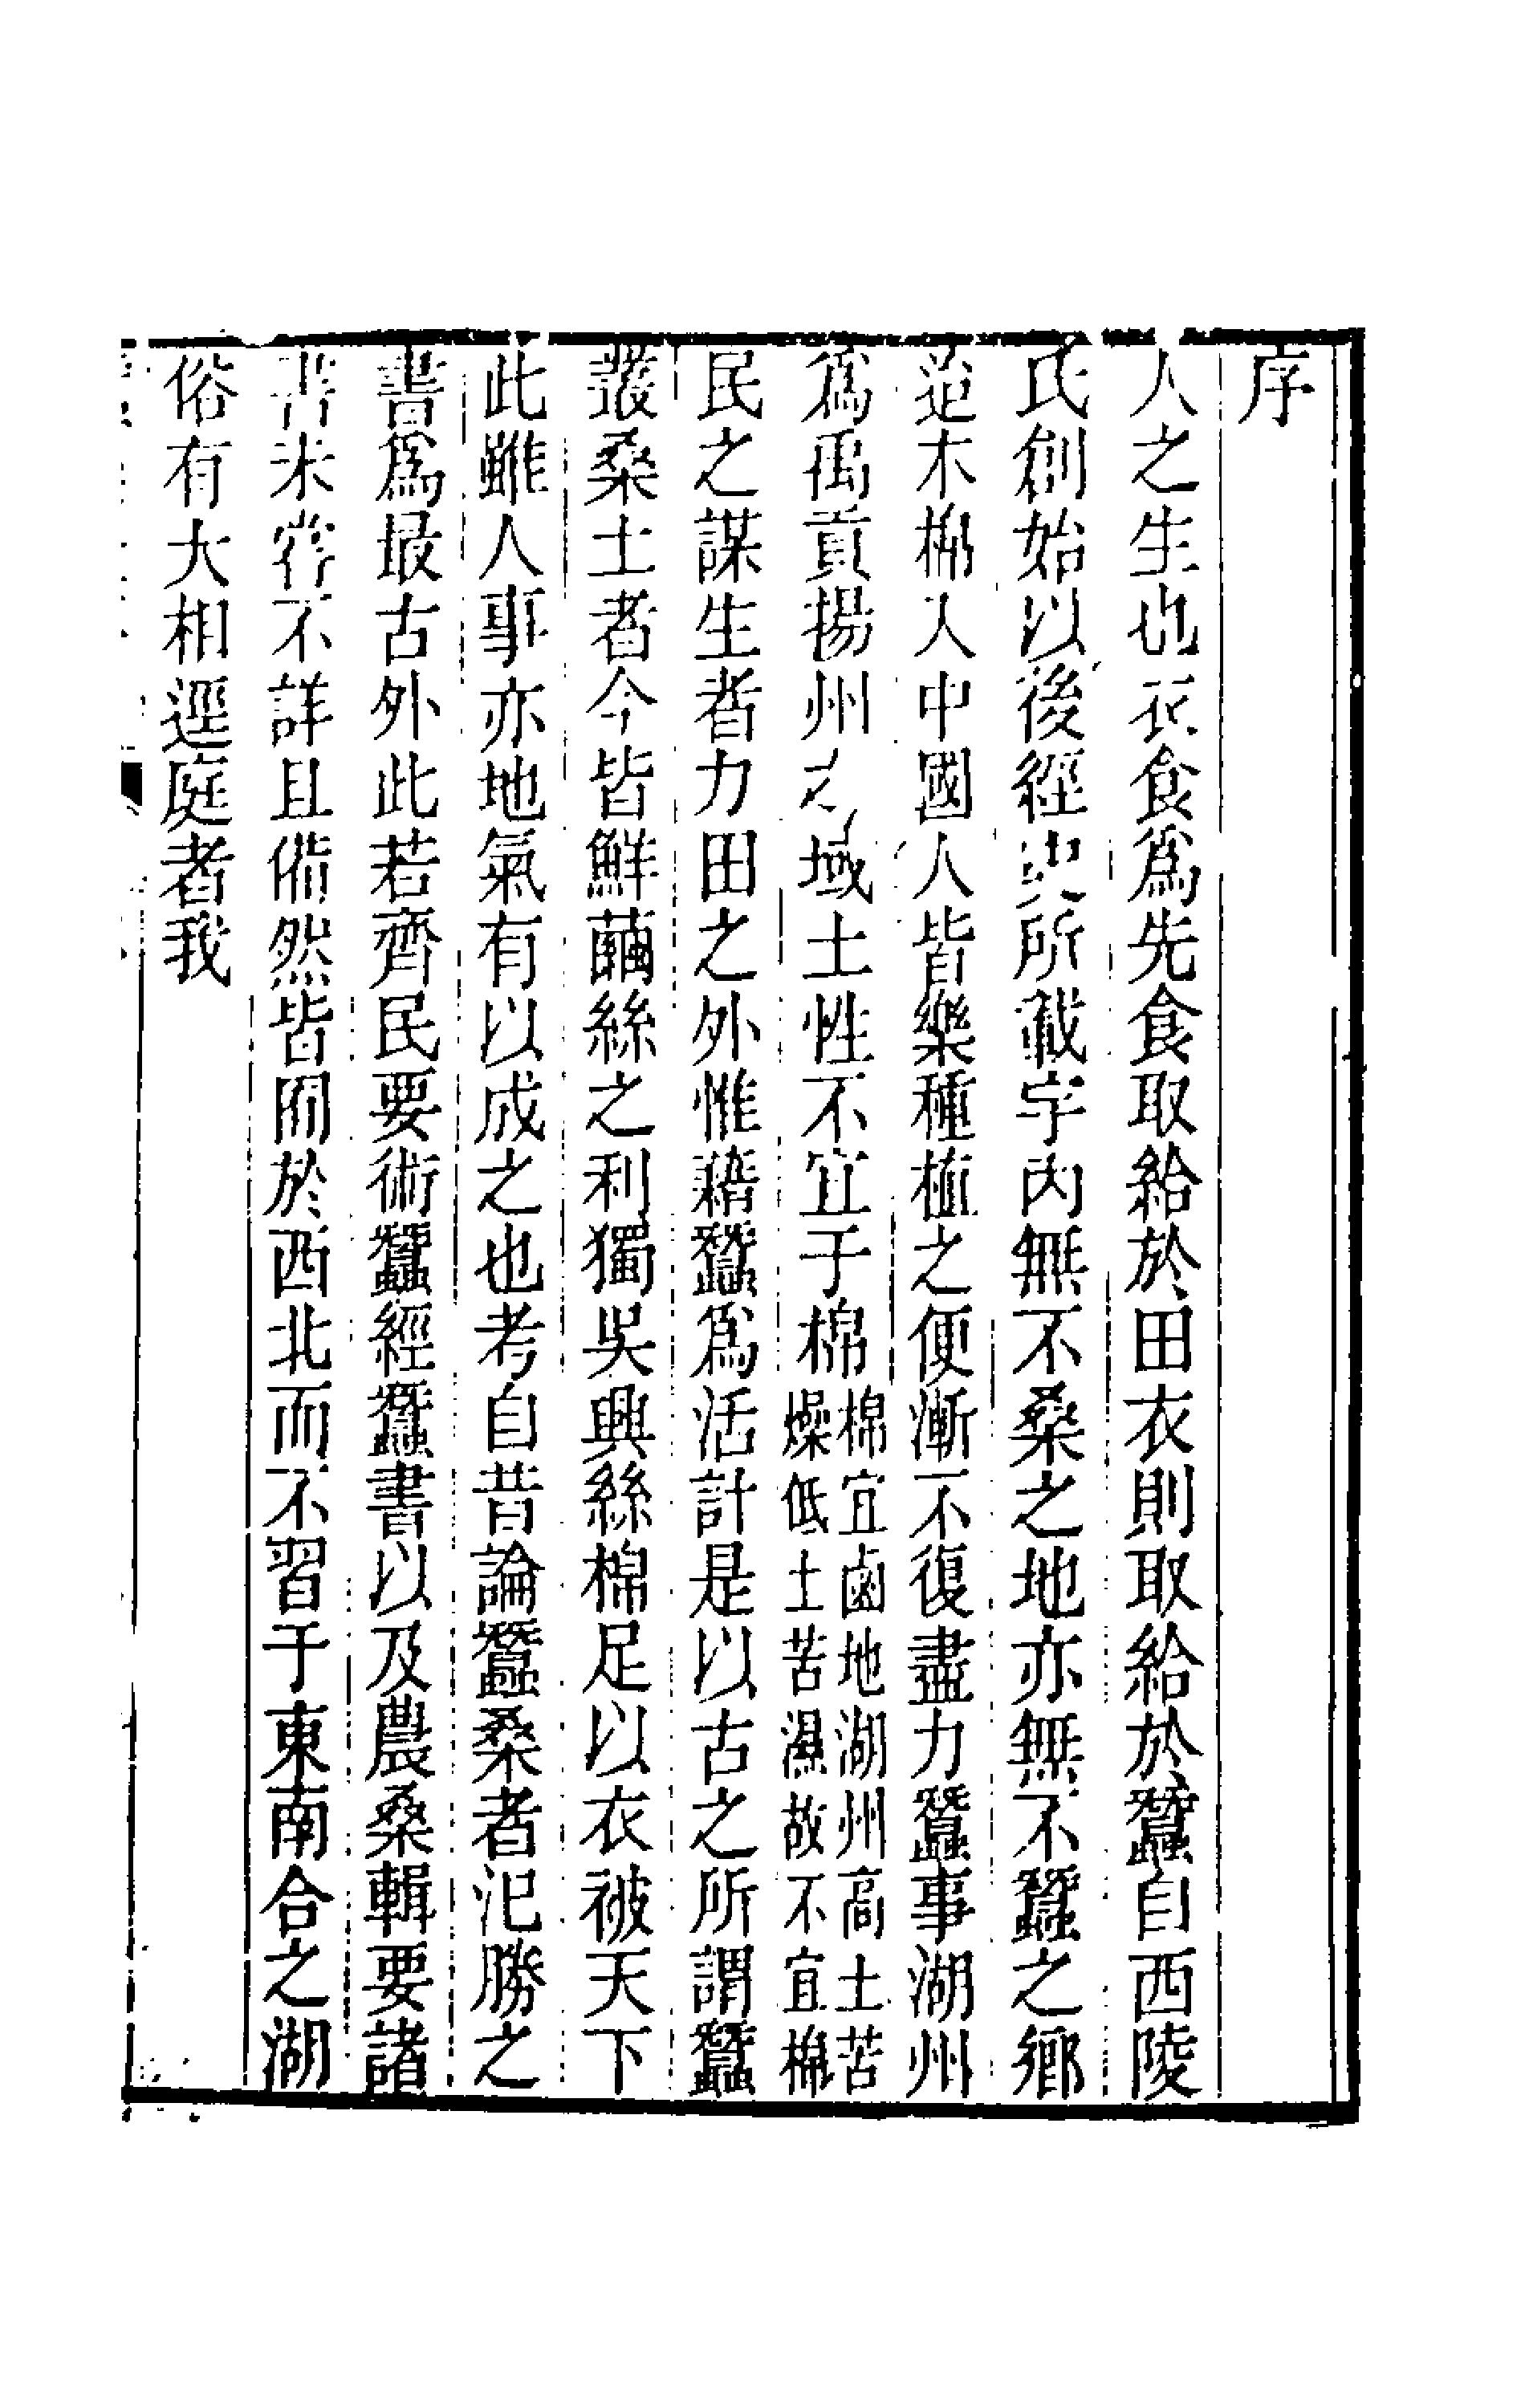 序
人之生也衣食爲先食取給於田衣則取給於蠶自西陵
氏創始以後經史所載宇內無不桑之地亦無不蠶之鄉
迨木棉入中國人皆樂種植之便漸不復盡力蠶事湖州
爲禹貢揚州之域土性不宜于棉棉宜鹵地湖州高土苦
燥低土苦濕故不宜棉
民之謀生者力田之外惟藉蠶爲活計是以古之所謂蠶
叢桑土者今皆鮮繭絲之利獨吳興絲棉足以衣被天下
此雖人事亦地氣有以成之也考自昔論蠶桑者氾勝之
書爲最古外此若齊民要術蠶經蠶書以及農桑輯要諸
書未嘗不詳且備然皆囿於西北而不習于東南合之湖
俗有大相逕庭者我